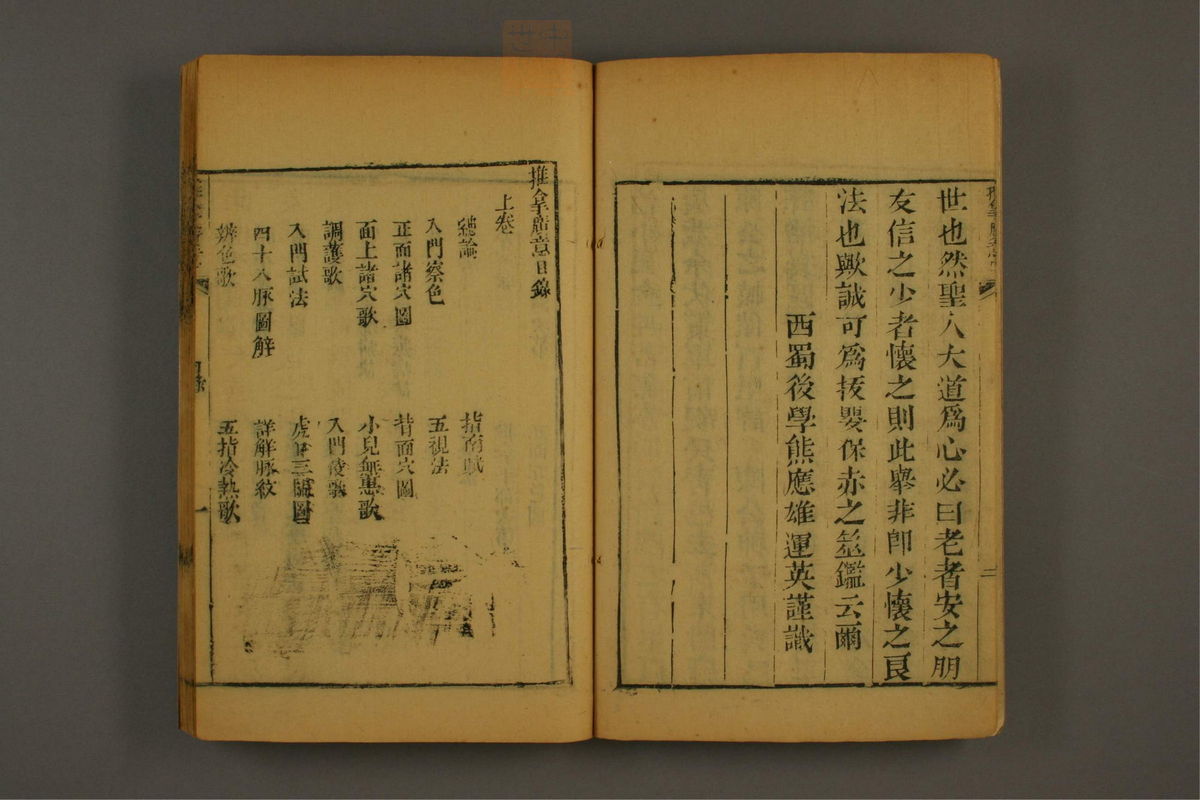 世也然聖人大道爲心必曰老者安之朋
友信之少者懷之則此舉非卽少懷之良
法也歟誠可爲抜嬰保赤之筮鑑云爾
西蜀後學熊應雄運英謹識
二
推拿廣意目錄
上卷
總論
指南賦
入門察色
五視法
正面諸穴圖
背面穴圖
面上諸穴歌
小兒無患歌
調護歌
入門候歌
入門試法
虎口三關圖
四十八脉圖解
詳解脉紋
辨色歌
五指冷熱歌
目錄
一